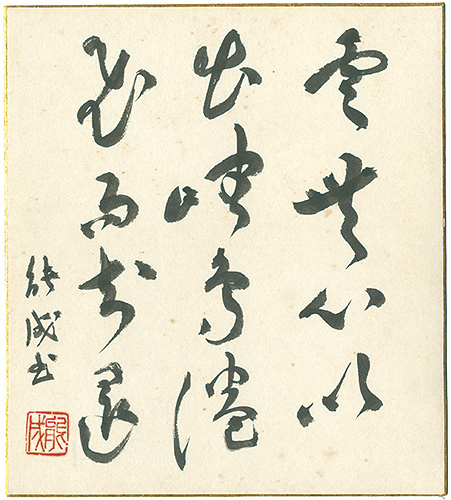 雲無心以
出岫鳥倦
飛而知還
能成書
能成